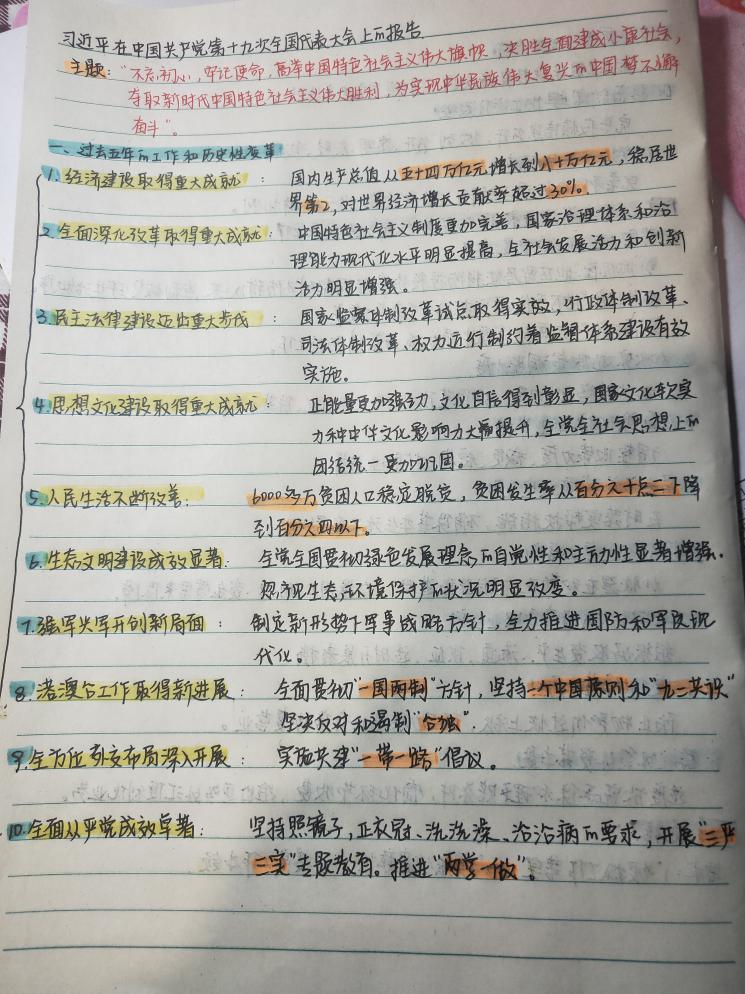 习近平在中国共产党第十九次全国代表大会上的报告
主题："不忘初心,牢记使命,高举中国特色社会主义伟大旗帜,决胜全面建成小康社会,
夺取新时代中国特色社会主义伟大胜利,为实现中华民族伟大复兴的中国梦不懈
奋斗"。
一、过去五年的工作和历史性变革
1.经济建设取得重大成就： 国内生产总值从五十四万亿元增长到八十万亿元,稳居世
界第2,对世界经济增长贡献率超过30%.
2.全面深化改革取得重大成就： 中国特色社会主义制度更加完善,国家治理体系和治
理能力现代化水平明显提高,全社会发展活力和创新
活力明显增强。
3.民主法律建设迈出重大步伐 国家监察体制改革试点取得实效,行政体制改革、
司法体制改革、权力运行制约着监督体系建设有效
实施。
4.思想文化建设取得重大成就： 正能量更加强劲,文化自信得到彰显,国家文化软实
力和中华文化影响力大幅提升,全党全社会思想上的
团结统一更加巩固。
5.人民生活不断改善： 6000多万贫困人口稳定脱贫,贫困发生率从百分之十点二下降
到百分之四以下。
6.生态文明建设成效显著： 全党全国贯彻绿色发展理念的自觉性和主动性显著增强.
忽视生态环境保护的状况明显改变。
7.强军兴军开创新局面： 制定新形势下军事战略方针,全力推进国防和军队现
代化。
8.港澳台工作取得新进展： 全面贯彻"一国两制"方针,坚持一个中国原则和"九二共识"
坚决反对和遏制"台独".
9.全方位外交布局深入开展： 实施共建"一带一路"倡议。
10.全面从严党成效卓著： 坚持照镜子,正衣冠、洗洗澡、治治病的要求,开展"三严
三实"专题教育。推进"两学一做"。